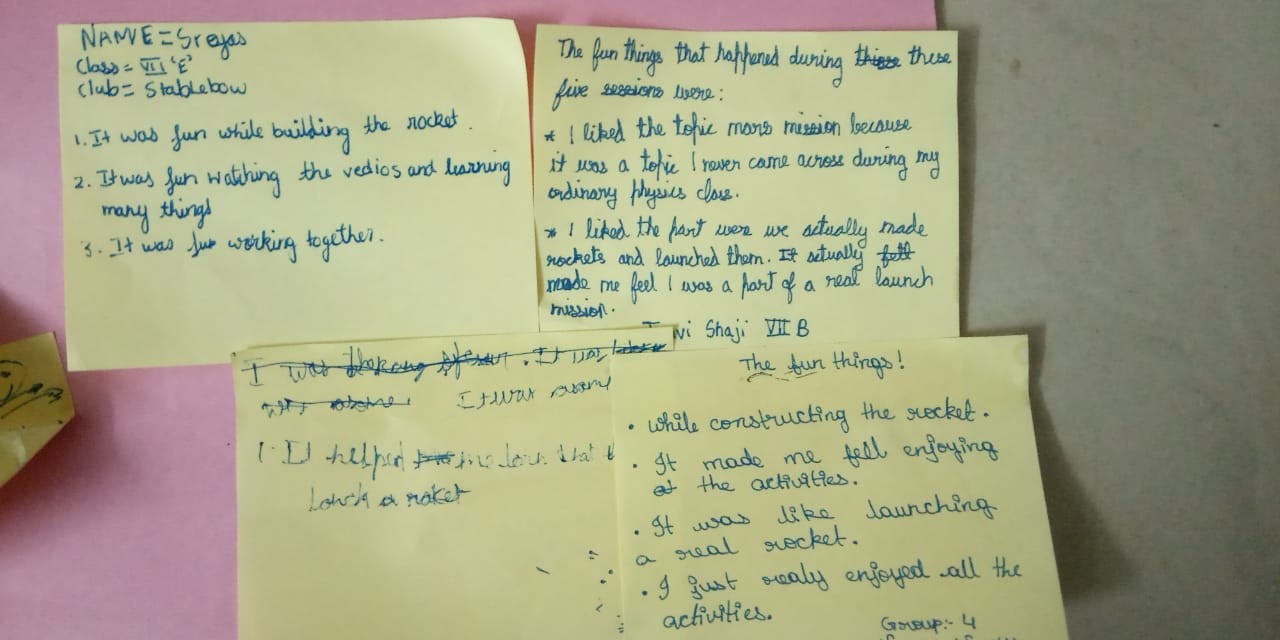 NAME = Sreyas
Class = VII 'E'
Club = Stablebow
1. It was fun while building the rocket.
2. It was fun watching the vedios and learning
many things
3. It was fun working together.
The fun things that happened during these
five sessions were:
* I liked the topic mars mission because
it was a topic I never came across during my
ordinary physics class.
* I liked the part were we actually made
rockets and launched them. It actually felt
made me feel I was a part of a real launch
mission.
vi Shaji VII B
I was . It was
It was
1. It helped me that
a
The fun things!
• while constructing the rocket.
• It made me fell enjoying
the activities.
• It was like launching
a real rocket.
• I just realy enjoyed all the
activities.
Group:- 4